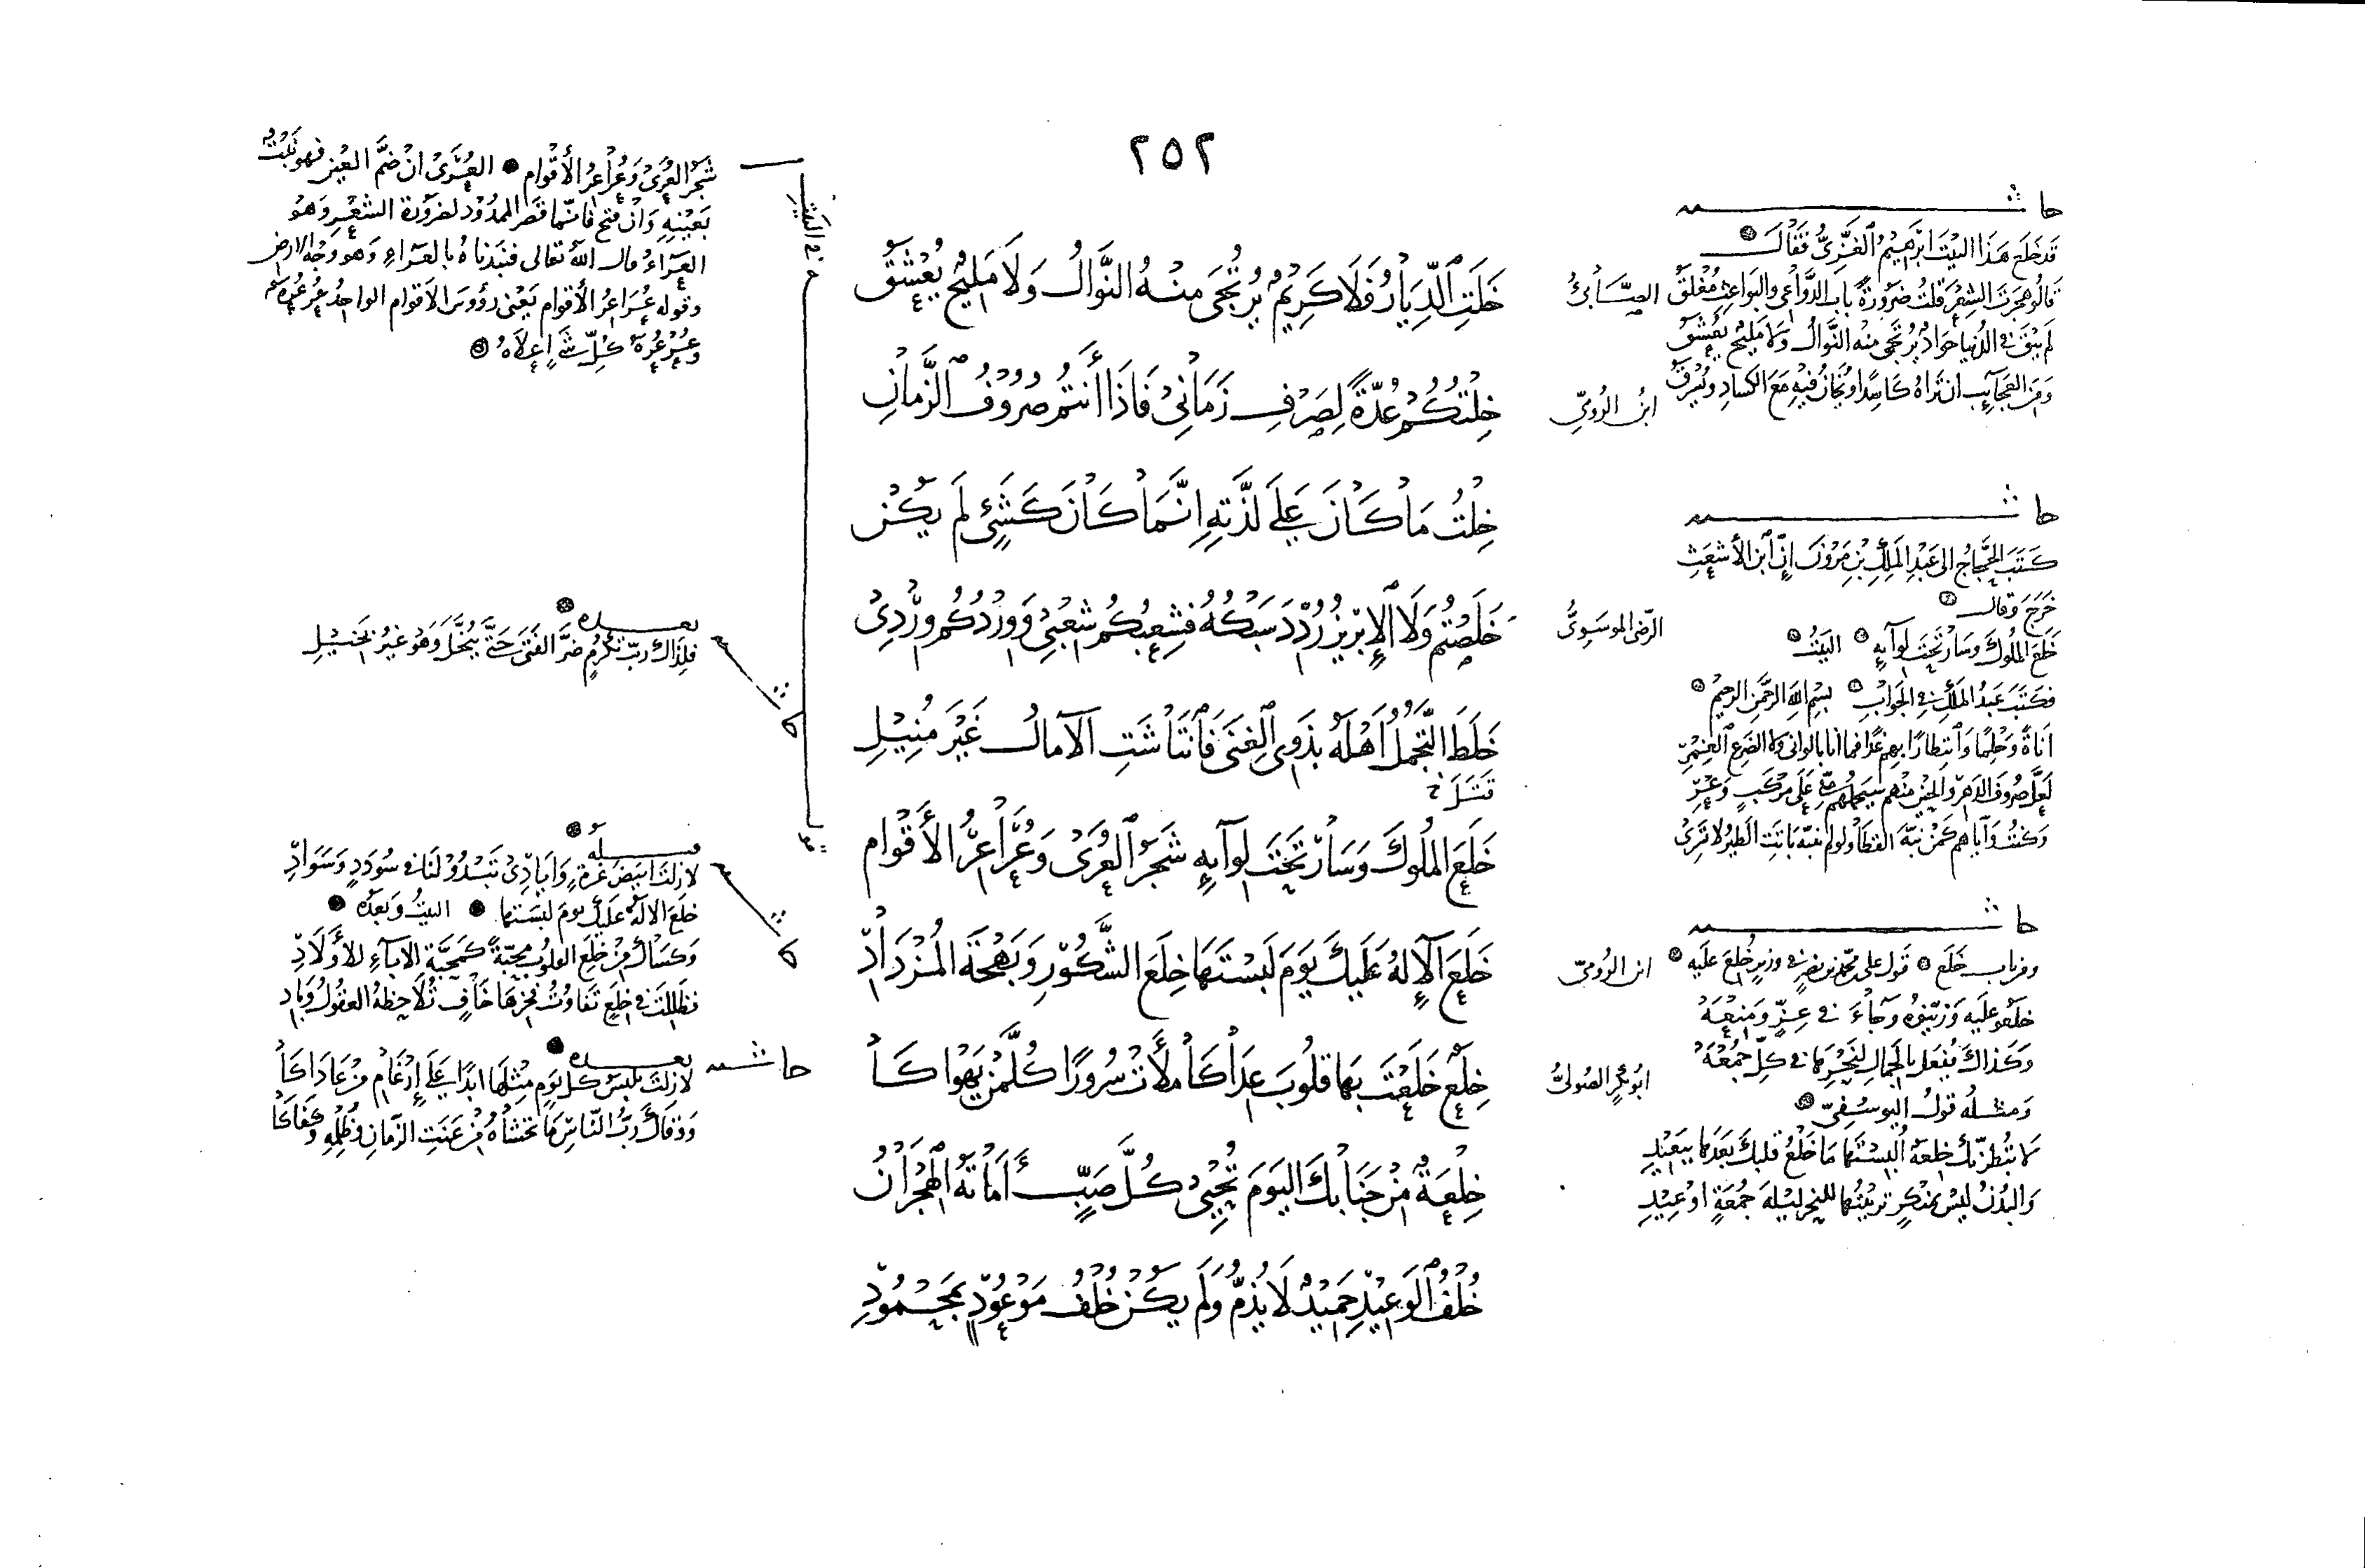 ٢٥٢
خَلَتِ الدِّيَارُ فَلَا كَرِيمٌ يُرْتَجَى مِنْهُ النَّوَالُ وَلَا مَلِيحٌ يُعْشَقُ
خِلْتُكُمْ عُدَّةً لِصَرْفِ زَمَانِي فَاذَا أَنتُم صُرُوفُ الزَّمَانِ
خِلْتُ مَا كَانَ عَلَى لَذَّتِهِ إِنَّمَا كَانَ كَشَيْءٍ لَمْ يَكُنْ
خَلَصْتُم وَلَا الإِبْرِيزُ رُدِّدَ سَبْكُهُ فَشِعْبُكُم شِعْبِي وَوِرْدُكُم وِرْدِي
خَلَطَ التَّجَمُّلُ أَهْلَهُ بِذَوِي الغِنَى فَانْتَاشَتِ الآمالُ غَيْرَ مُنِيْلِ
خَلَعَ المُلُوكَ وَسَارَ تَحْتَ لِوَائِهِ شَجَرُ العُرَى وَعُرَاعِرُ الأَقْوَام
خَلَعَ الإِلٰهُ عَلَيكَ يَوْمَ لَبِسْتَهَا خِلَعَ الشَّكُوْرِ وَبَهْجَةَ المُزْدَادِ
خِلَعٌ خَلَعْتَ بِهَا قُلُوبَ عِدَاكَا مَلَأَتْ سُرُورًا كُلَّ مَنْ يَهْوَاكَا
خِلْعَةٌ مِنْ جَنَابِكَ اليَومَ تُحْيِي كُلَّ صَبٍّ أَمَاتَهُ الهِجْرَانُ
خُلْفُ الوَعِيْدِ حَمِيْدٌ لَا يُذَمُّ وَلَمْ يَكُنْ خُلْفُ مَوْعُوْدٍ بِمَحْمُوْدِ
الصَّابِئُ
ابْنُ الرُّومِيِّ
الرَّضِي المُوسَوِيُّ
ابْنُ الرُّومِيِّ
أَبُو بَكْرٍ الصُّولِيُّ
حاشـــــية
قَد خَلَعَ هَذَا البَيْتَ ابْرَهِيْمُ الغَزِّيُّ فَقَالَ
قَالُوا هَجَرْتَ الشِعْرَ قُلْتُ ضَرُورَةً بَابُ الدَّوَاعِي وَالبَوَاعِثِ مُغْلَقُ
لَم يَبْقَ فِي الدُّنْيَا جَوَادٌ يُرْتَجَى مِنْهُ النَّوَالُ وَلَا مَلِيحٌ يُعْشَقُ
وَمِنَ العَجَائِبِ أَنْ تَرَاهُ كَاسِدًا وَيُخَانُ فِيهِ مَعَ الكَسَادِ وَيُسْرَقُ
حاشـــــية
كَتَبَ الحَجَّاجُ إلَى عَبْدِ المَلِكِ بْنِ مَرْوَانَ إِنَّ ابْنَ الأَشْعَثِ
خَرَجَ وَقَالَ
خَلَعَ المُلُوكَ وَسَارَ تَحْتَ لِوَائِهِ البَيْتُ
فَكَتَبَ عَبْدُ المَلِكِ فِي الجَوَابِ بِسْمِ اللهِ الرَّحْمَنِ الرَّحِيمِ
أَنَاةً وَحِلْمًا وَانْتِظَارًا بِهِمْ غَدًا فَمَا أَنَا بِالوَانِي وَلَا الضَّرَعِ الغُمْرِ
لَعَلَّ صُرُوفَ الدَّهْرِ وَالحَيْنَ مِنْهُم سَيَحْمِلُهُم مِنِّي عَلَى مَرْكَبٍ وَعْرِ
وَكُنْتُ وَإِيَّاهُم كَمَنْ نَبَّهَ القَطَا وَلَو لَم تُنَبَّهْ بَاتَتِ الطَّيْرُ لَا تَسْرِي
حاشـــــية
وَمِن بَابِ خَلَعَ قَوْلُ عَلِي مُحَمَّد بن نَصْرٍ فِي وَزِيرٍ خُلِعَ عَلَيهِ
خَلَعُوا عَلَيهِ وَزَيَّنُوهُ وَجَاءَ فِي عِزٍّ وَمَنْعَهْ
وَكَذَاكَ يُفْعَلُ بِالجِمَالِ لِنَحْرِهَا فِي كُلِّ جُمْعَهْ
وَمِثْلُهُ قَوْلُ البُوسُفِيِّ
لَا تُبْطِرَنَّكَ خِلْعَةٌ أُلْبِسْتَهَا مَا خَلْعُ قَلْبِكَ بَعْدَهَا بِبَعِيْدِ
وَالبُدْنُ لَيْسَ بِمُنْكَرٍ تَزْيِيْنُهَا لِلنَّحْرِ لَيْلَةَ جُمْعَةٍ أَوْ عِيْدِ
شَجَرُ العُرَى وَعُرَاعِرُ الأَقْوَام العُرَى انْ ضُمَّ العَيْن فهو نَبْتٌ
بِعَيْنِهِ وَانْ فُتِحَ فَانَّمَا قَصَرَ المَمْدُوْدَ لِضَرُوْرَةِ الشِّعْرِ وَهُوَ
العَرَاءُ قال الله تعالى فنبذناهُ بالعَرَاءِ وَهو وَجْهُ الارض
وقوله عُرَاعِرُ الأَقْوَامِ يَعْنِي رؤوسَ الأَقْوَام الوَاحِدُ عُرْعُرَةٌ
وَعُرْعُرَةُ كُلِّ شَيْءٍ إِعْلَاهُ
بعـــده
فَلِذَاكَ رَبّ تَكَرُّمٍ ضَرَّ الفَتَى حَتَّى يُبَخَّلَ وَهُوَ غَيْرُ بَخِيْلِ
حاشية
قبـــله
لَا زِلْتَ أَبْيَضَ غُرَّةٍ وَأَيَادِي تَبْدُو لَنَا فِي سُؤْدَدٍ وَسَوَادِ
خَلَعَ الالَهُ عَلَيْكَ يَومَ لَبِسْتَهَا البَيْتُ وَبَعْدَهُ
وَكَسَاكَ مِنْ خِلَعِ القُلُوبِ مَحَبَّةً كَمَحَبَّةِ الآبَاءِ لِلأَوْلَادِ
فَظَلَلْتَ فِي خِلَعٍ تَفَاوُتُ فَخْرِهَا خَافٍ تُلَاحِظُهُ العُقُولُ وَبَادِ
حاشـية
بعـــده
لَا زِلْتَ تَلْبَسُ كُلَّ يَوْمٍ مِثْلَهَا أَبَدًا عَلَى إِرْغَامِ مَنْ عَادَاكَا
وَوَقَاكَ رَبُّ النَّاسِ مَا تَخْشَاهُ مِنْ عَنَتِ الزَّمَانِ وَظُلْمِهِ وَكَفَاكَا